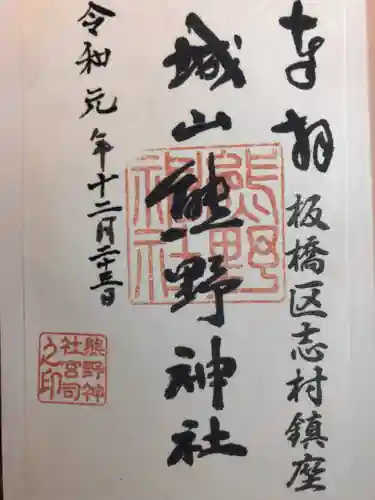 奉拝
板橋区志村鎮座
城山熊野神社
熊野
神社
令和元年十二月二十三日
熊野神
社宮司
之印